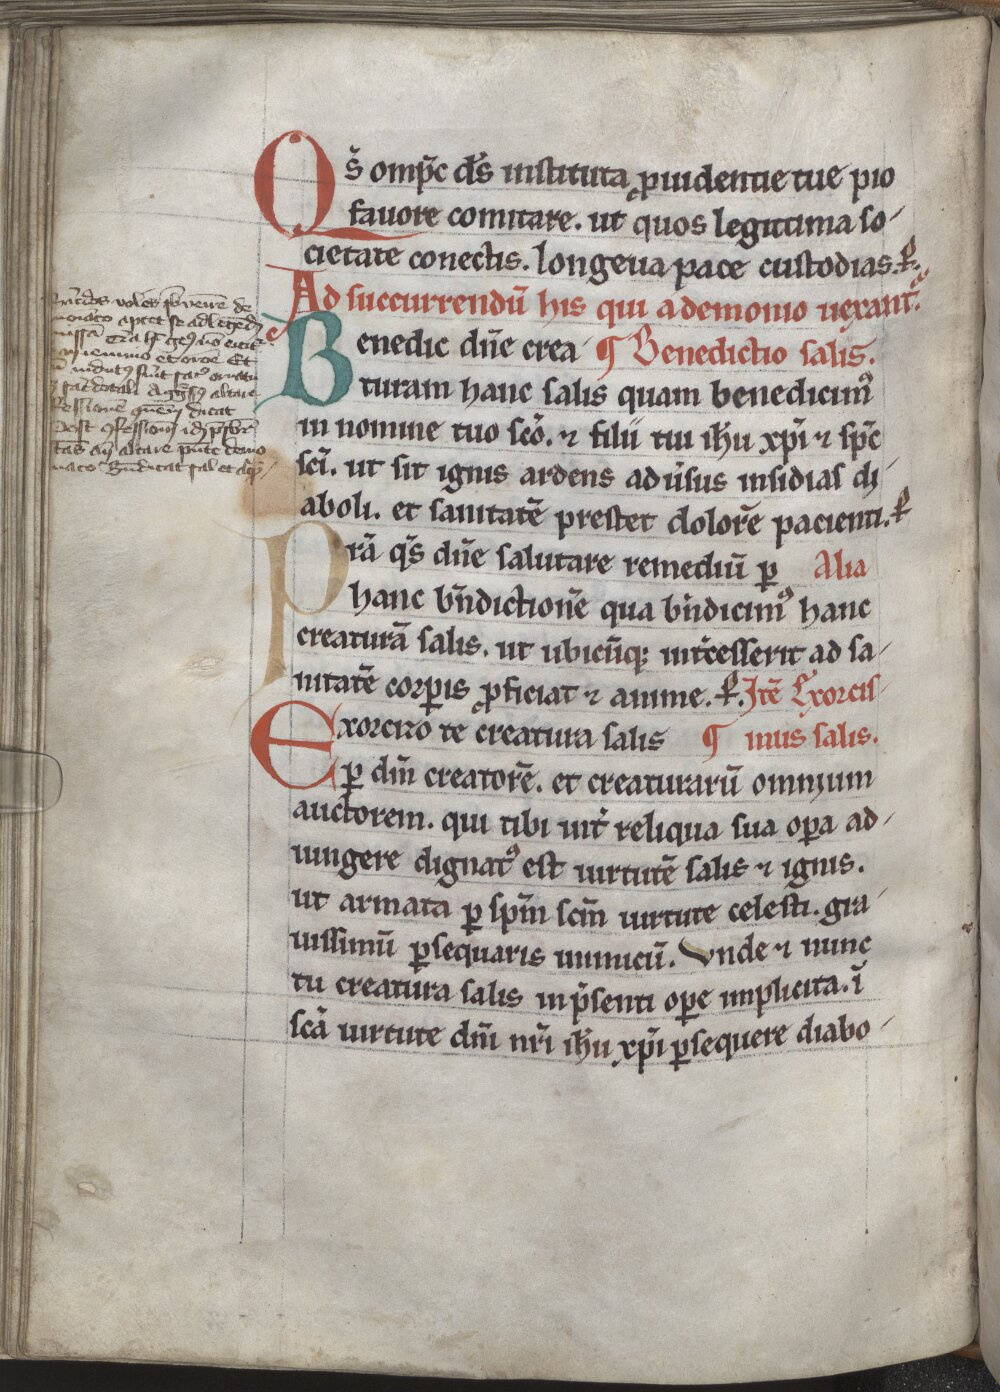 Qs̄ omp̄c ds̄ instituta ꝓuidentie tue pio
fauore comitare. ut quos legitima so-
cietate conectis. longeua pace custodias. ꝑ.
Ad succurrendū his qui a demonio uexantᷣ.
Benedic dn̄e crea ¶ Benedictio salis.
turam hanc salis quam benedicimꝰ
in nomine tuo sc̄o. ⁊ filii tui ih̄u xp̄i ⁊ sp̄c
sc̄i. ut sit ignis ardens aduꝰsus insidias di
aboli. et sanitatē prestet dolorē pacienti. ꝑ
Prā qs̄ dn̄e salutare remediū ꝑ Alia
hanc bn̄dictionē qua bn̄dicimꝰ hanc
creaturā salis. ut ubicūqꝫ int̄cesserit ad sa-
nitatē corꝑis ꝓficiat ⁊ anime. ꝑ. Itē Exorcis-
Exorcizo te creatura salis ¶ mus salis.
ꝑ dm̄ creatorē. et creaturarū omnium
auctorem. qui tibi int̄ reliqua sua oꝑa ad-
iungere dignatꝰ est uirtutē salis ⁊ ignis.
ut armata ꝑ sp̄m sc̄m uirtute celesti. gra-
uissimū ꝑsequaris inimicū. Vnde ⁊ nunc
tu creatura salis in p̄senti oꝑe implicita. ī
sc̄a uirtute dn̄i nr̄i ih̄u xp̄i ꝑsequere diabo-